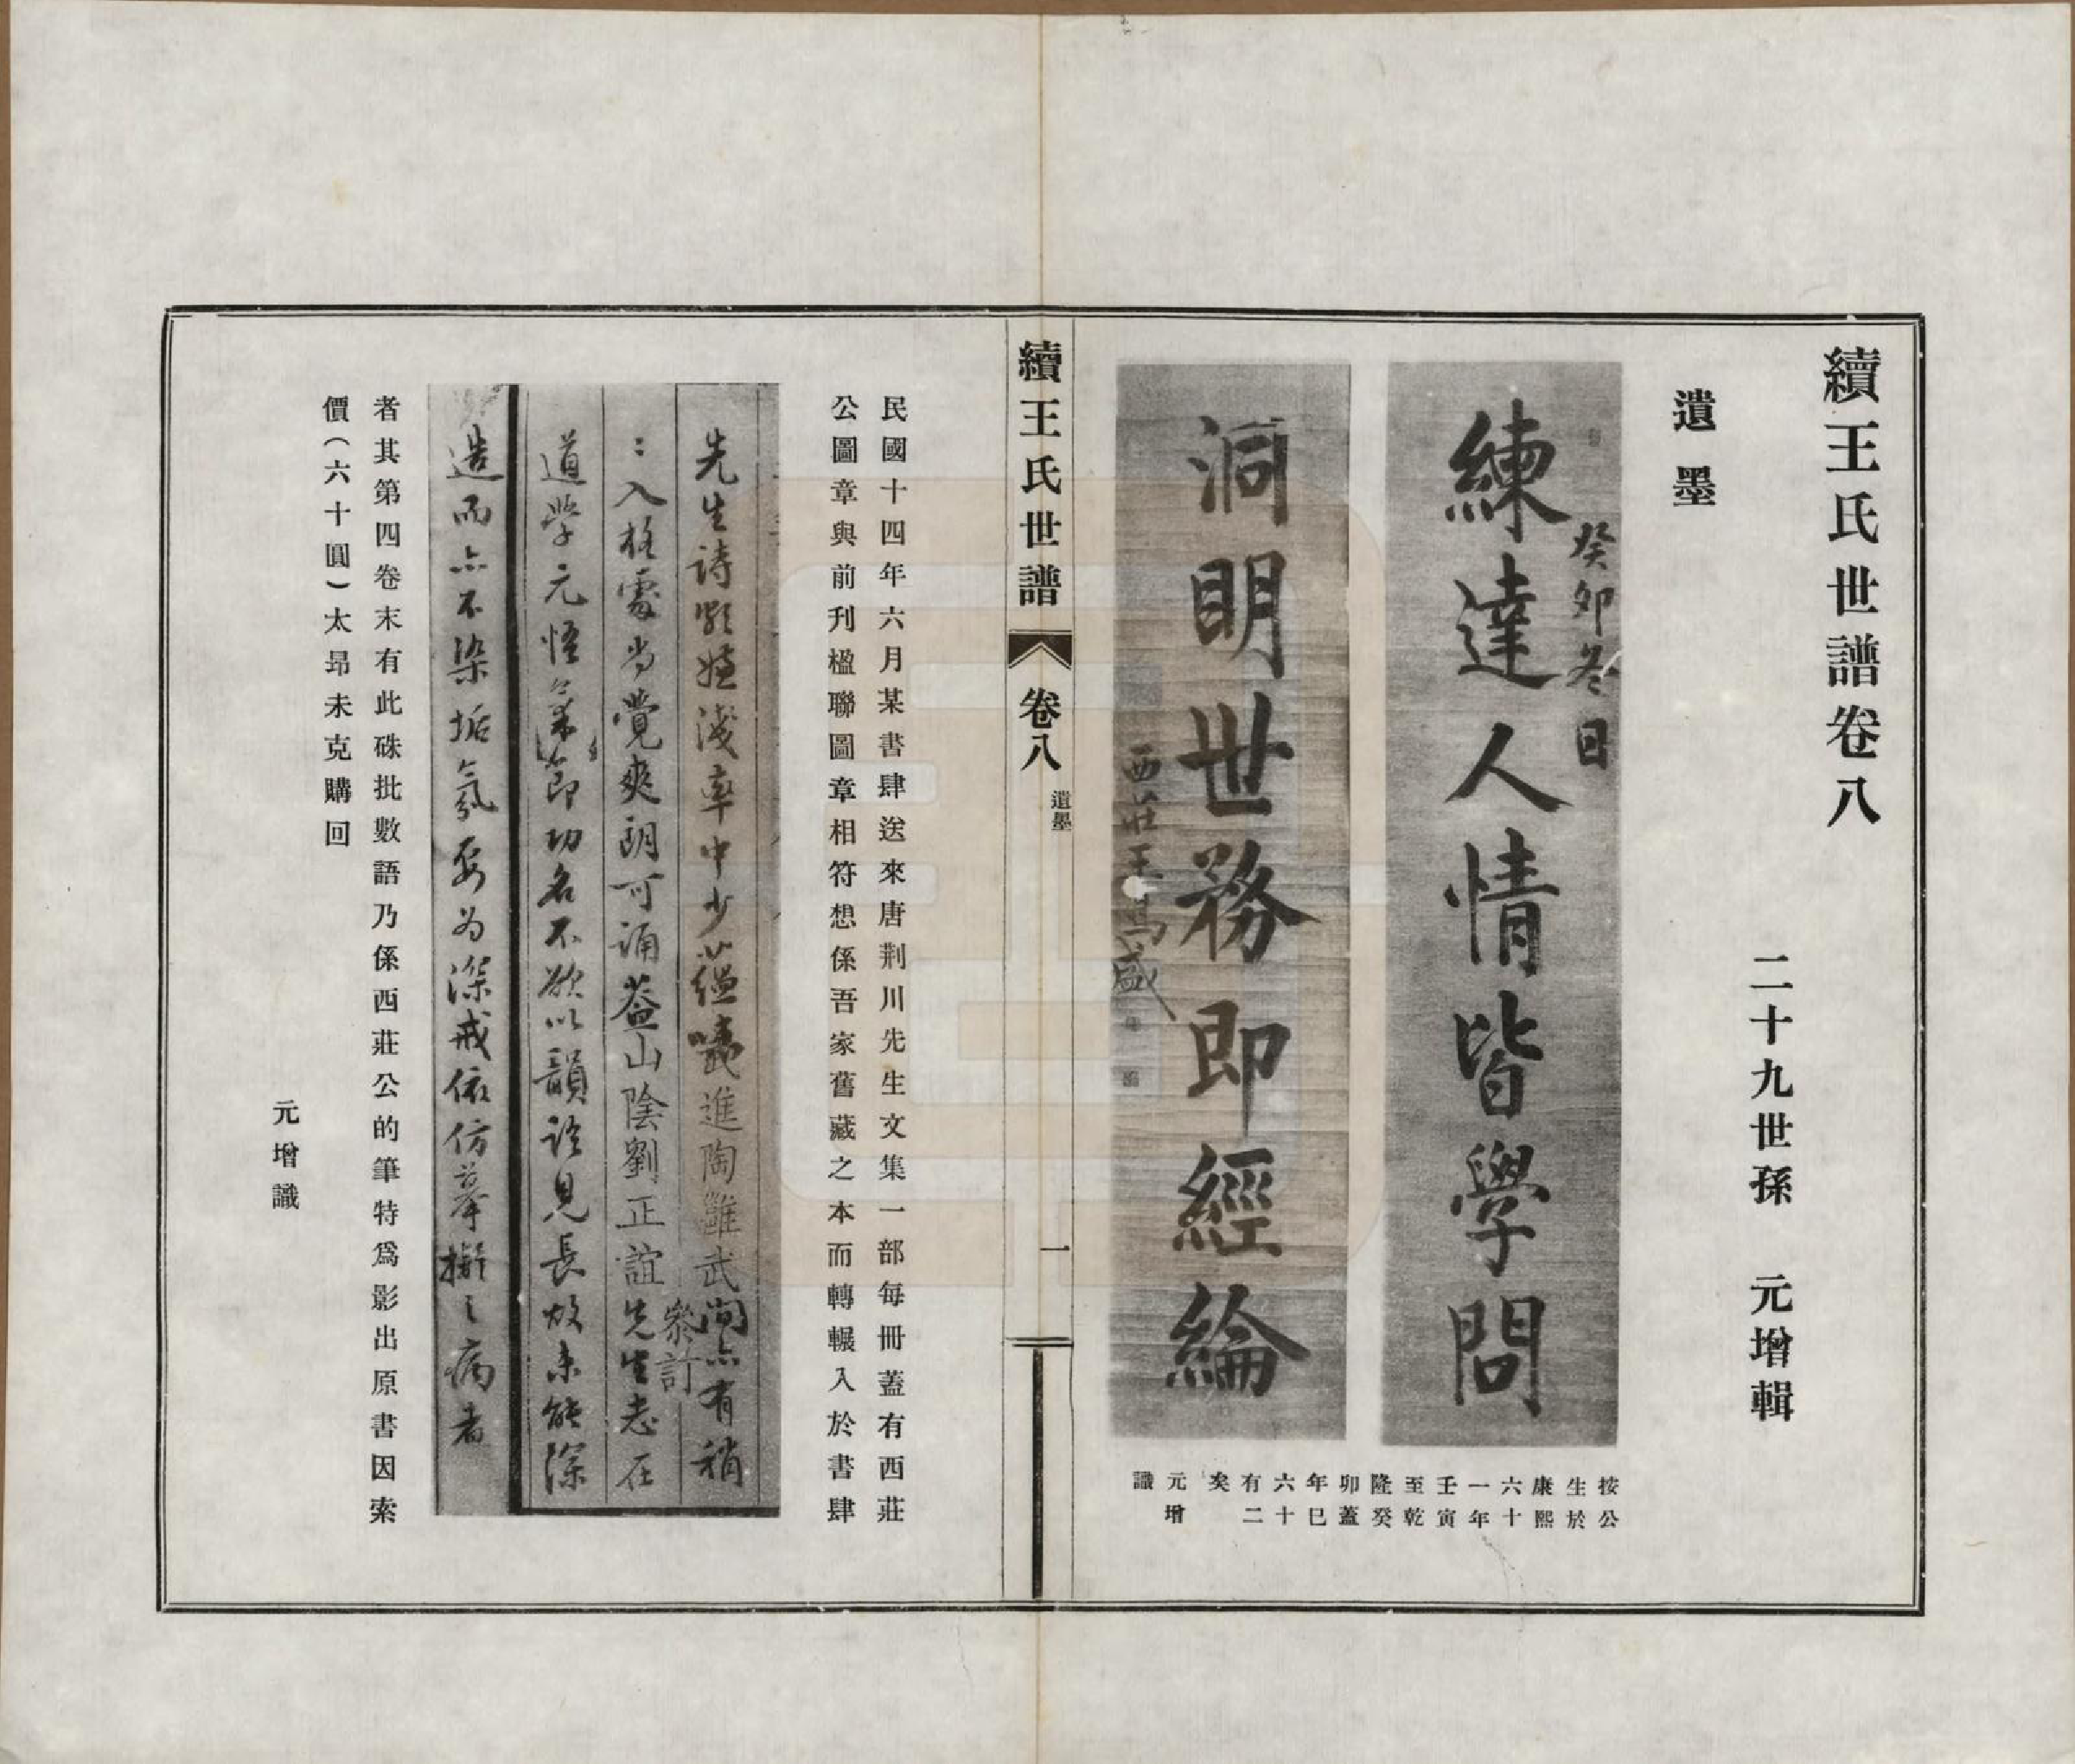 續王氏世譜卷八
二十九世孫 元增輯
遺墨
癸卯冬日
練達人情皆學問
洞明世務即經綸
西莊王鳴盛
按公
生於
康熙
六十
一年
壬寅
至乾
隆癸
卯蓋
年巳
六十
有二
矣
元增
識
續王氏世譜 卷八 遺墨 一
民國十四年六月某書肆送來唐荆川先生文集一部每冊蓋有西莊
公圖章與前刊楹聯圖章相符想係吾家舊藏之本而轉輾入於書肆
先生詩嫌淺率中少蘊 進陶雖武間亦有稍
參訂
入格處尚覺爽朗可誦蓋山陰劉正誼先生志在
道學元悟氣節功名不欲以韻語見長故未能深
造而亦不染垢氛要為深戒依仿摹擬之病者
者其第四卷末有此硃批數語乃係西莊公的筆特爲影出原書因索
價（六十圓）太昂未克購回
元增識